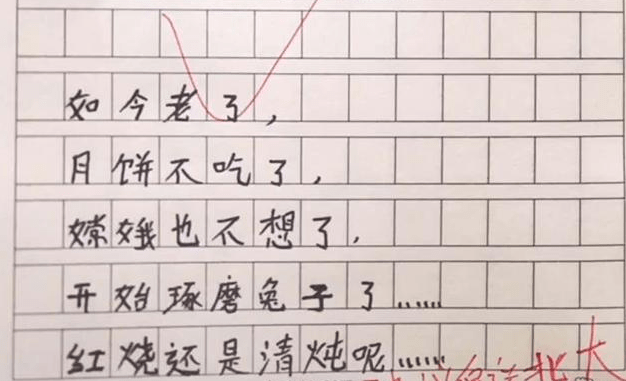 如今老了，
月饼不吃了，
嫦娥也不想了，
开始琢磨兔子了……
红烧还是清炖呢……
北大